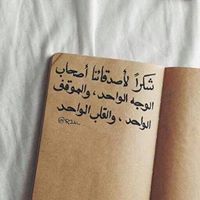 شكراً لأصدقائنا أصحاب
الوجه الواحد، والموقف
الواحد، والقلب الواحد